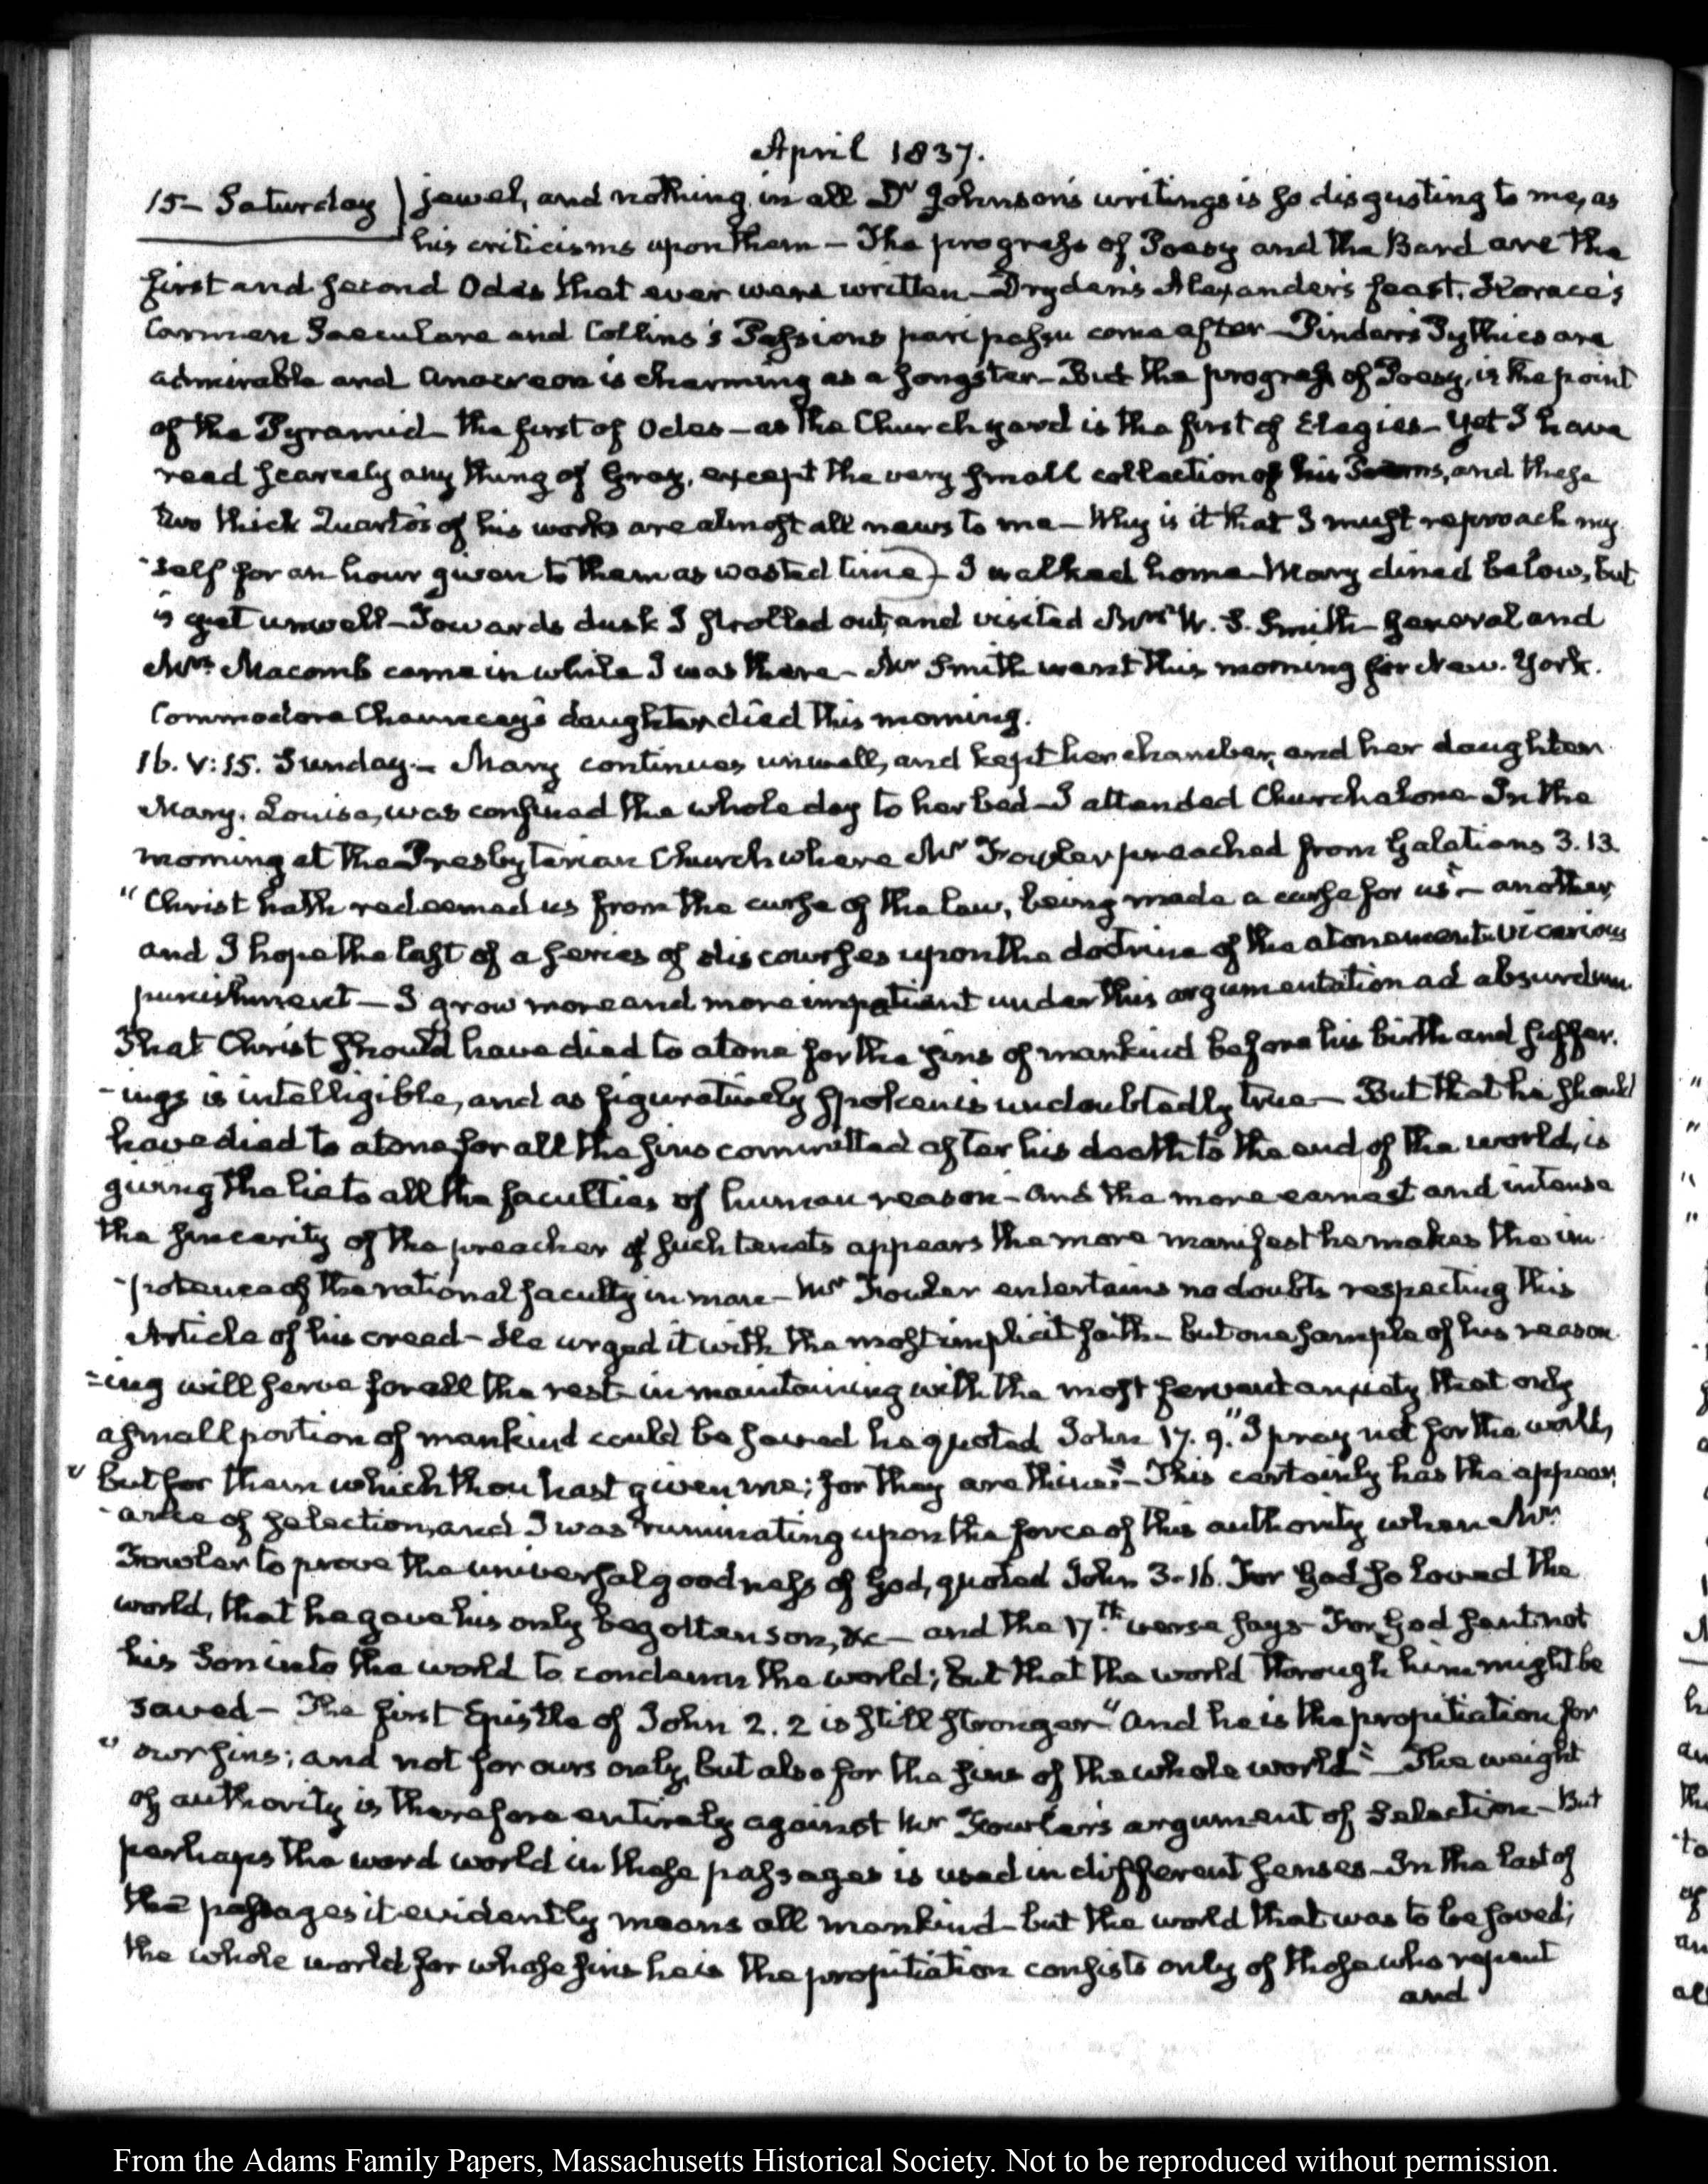 April 1837.
15 – Saturday
jewel, and nothing in all Dr Johnson's writings is so disgusting to me, as
his criticisms upon them – The progress of Poesy and the Bard are the
first and second Odes that ever were written – Dryden's Alexander's feast, Horace's
Carmen Saeculare and Collins's Passions pari passu come after – Pindar's Pythics are
admirable and Anacreon is charming as a songster – But the progress of Poesy, is the point
of the Pyramid – the first of Odes – as the Churchyard is the first of Elegies – Yet I have
read scarcely any thing of Gray, except the very small collection of his Poems, and these
two thick Quarto's of his works are almost all news to me – Why is it that I must reproach my
-self for an hour given to them as wasted time) – I walked home – Mary dined below, but
is yet unwell – Towards dusk I strolled out, and visited Mrs W. S. Smith – General and
Mrs Macomb came in while I was there – Mr Smith went this morning for New-York.
Commodore Chauncey's daughter died this morning.
16. V:15. Sunday – Mary continues unwell, and kept her chamber, and her daughter
Mary-Louisa, was confined the whole day to her bed – I attended Church alone – In the
morning at the Presbyterian Church where Mr Fowler preached from Galations 3.13.
"Christ hath redeemed us from the curse of the law, being made a curse for us" – another,
and I hope the last of a series of discourses upon the doctrine of the atonement. Vicarious
punishment – I grow more and more impatient under this argumentation ad absurdum.
That Christ should have died to atone for the sins of mankind before his birth and suffer-
-ings is intelligible, and as figuratively spoken is undoubtedly true – But that he should
have died to atone for all the sins committed after his death to the end of the world, is
giving the lie to all the faculties of human reason – and the more earnest and intense
the sincerity of the preacher of such tenets appears the more manifest he makes the im-
-potence of the rational faculty in man – Mr Fowler entertains no doubts respecting this
Article of his creed – He urged it with the most implicit faith – but one sample of his reason
=ing will serve for all the rest – in maintaining with the most fervent anxiety that only
a small portion of mankind could be saved he quoted John 17.9. "I pray not for the world,
"but for them which thou hast given me; for they are thine" – This certainly has the appear-
-ance of selection, and I was ruminating upon the force of this authority when Mr
Fowler to prove the universal goodness of God, quoted John 3-16. For God so loved the
world, that he gave his only begotten son, &c – and the 17th verse says – For God sent not
his Son into the world to condemn the world; but that the world through him might be
saved – The first Epistle of John 2.2 is still stronger "And he is the propitiation for
"our sins; and not for ours only, but also for the sins of the whole world" – The weight
of authority is therefore entirely against Mr Fowler's argument of Selection – But
perhaps the word world in these passages is used in different senses – In the last of
the passages it evidently means all mankind – but the world that was to be saved;
the whole world for whose sins he is the propitiation consists only of those who repent
and
From the Adams Family Papers, Massachusetts Historical Society. Not to be reproduced without permission.